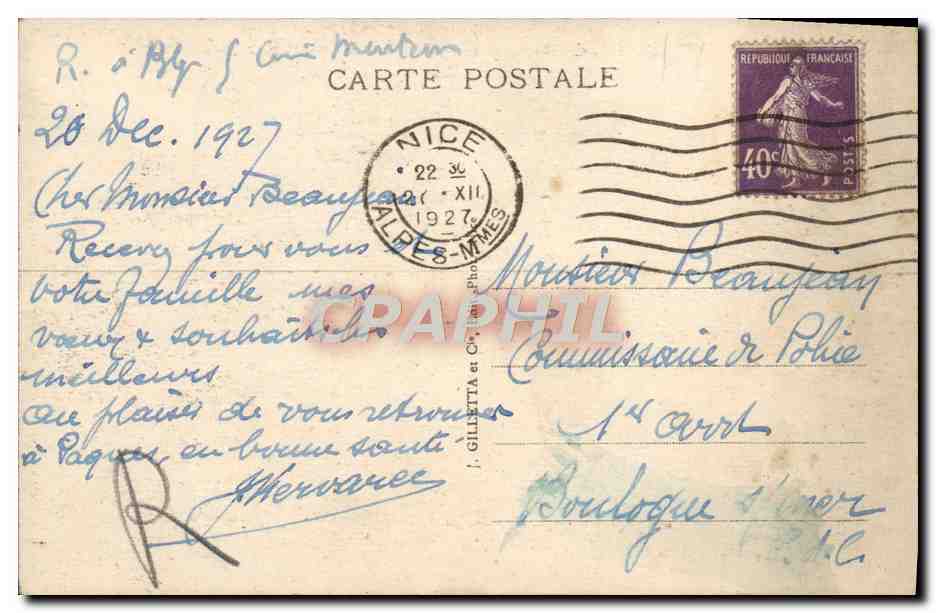 R. à
CARTE POSTALE
REPUBLIQUE FRANÇAISE
40c
POSTES
NICE
22 30
27 · XII
1927
ALPES-MMES
20 Dec. 1927
Cher Monsieur Beaujean
Recevez pour vous &
votre famille mes
voeux & souhaits les
meilleurs
au plaisir de vous retrouver
à Paques en bonne santé
R
Monsieur Beaujean
Commissaire de Police
1er arrdt
Boulogne s/mer
P.d.C.
J. GILLETTA et Cie,
CPAPHIL